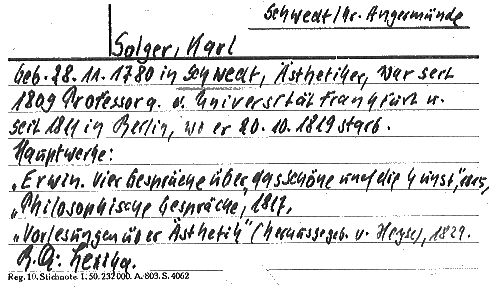 Schwedt/Kr. Angermünde
Solger, Karl
geb. 28.11.1780 in Schwedt, Ästhetiker, war seit
1809 Professor a. d. Universität Frankfurt u.
seit 1811 in Berlin, wo er 20.10.1819 starb.
Hauptwerke:
„Erwin. Vier Gespräche über das Schöne und die Kunst“, 1815,
„Philosophische Gespräche, 1817,
„Vorlesungen über Ästhetik“ (herausgegeb. v. Heyse), 1829.
Reg. 10. Stichnote. 1. 50. 232 000. A. 803. S. 4062